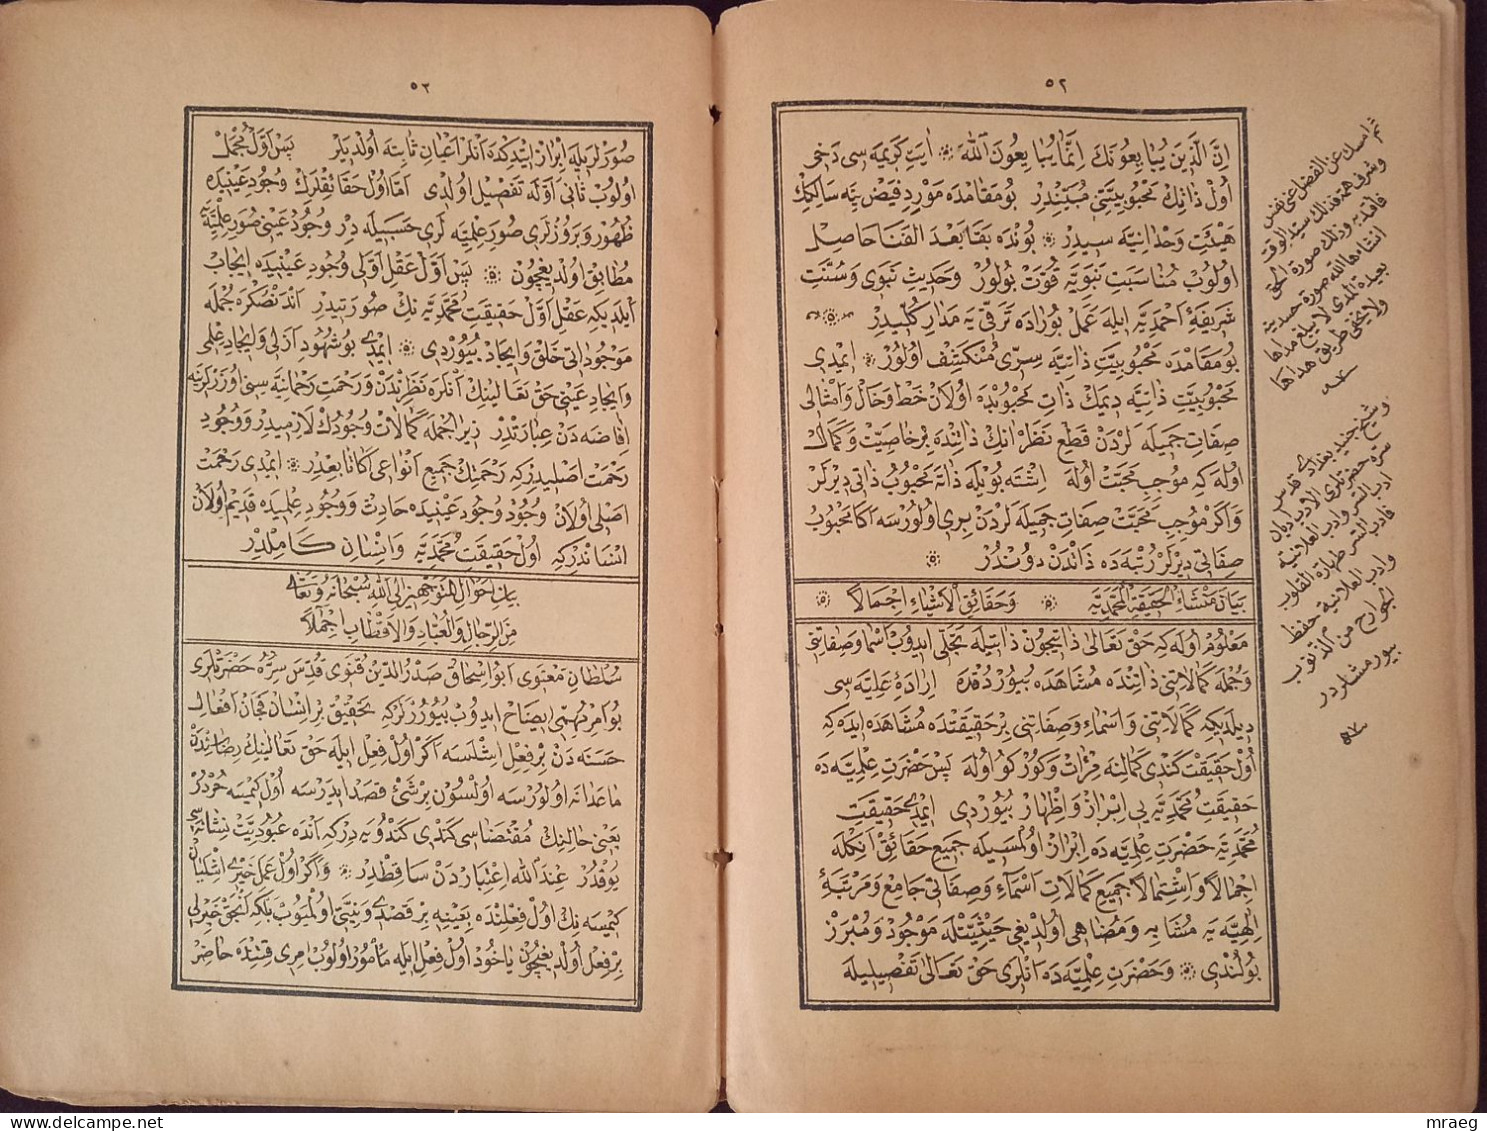 ٥٢
اِنَّ الَّذِينَ يُبَايِعُونَكَ اِنَّمَا يُبَايِعُونَ اللهَ اٰيت كريمه سى دخى
اول ذاتك محبوبيتنى مبيندر بو مقامده مورد فيض يه سالكك
هيئت وحدانيه سيدر بونده بقا بعد الفنا حاصل
اولوب مناسبت نبويه قوت بولور وحديث نبوى وسنت
شريفۀ احمديه ايله عمل بوراده ترقى يه مدار كليدر
بو مقامده محبوبيت ذاتيه سرى منكشف اولور ايمدى
محبوبيت ذاتيه ديمك ذات محبونده اولان خط وخال وامثالى
صفات جميله لردن قطع نظر انك ذاتنده بر خاصيت وكمالك
اوله كه موجب محبت اوله اشته بويله ذاته محبوب ذاتى ديرلر
واكر موجب محبت صفات جميله لردن برى اولورسه اكا محبوب
صفاتى ديرلر رتبه ده ذاتدن دوندر
بيان منشاء الحقيقة المحمديه وحقائق الاشياء اجمالا
معلوم اوله كه حق تعالى ذاتيچون ذاتيله تجلى ايدوب اسما وصفاتنى
وجمله كمالاتنى ذاتنده مشاهده بيوردقده ارادۀ عليه سى
ديلديكه كمالاتنى واسماء وصفاتنى بر حقيقتده مشاهده ايده كه
اول حقيقت كندى كمالنه مرات وكوزكو اوله پس حضرت علميه ده
حقيقت محمديه يى ابراز واظهار بيوردى ايمدى حقيقت
محمديه حضرت علميه ده ابراز اولمسيله جميع حقائق انكله
اجمالا واشتمالا جميع كمالات اسماء وصفاتى جامع ومرتبۀ
الهيه يه مشابه ومضاهى اولديغى حيثيتله موجود ومبرز
بولندى وحضرت علميه ده انلرى حق تعالى تفصيليله
وشيخ جنيد بغدادى قدس
سره حضرتلرى الادب ادبان
ادب السر وادب العلانية
فادب السر طهارة القلوب
وادب العلانية حفظ
الجوارح من الذنوب
بيورمشلردر
٥٣
صورلريله ابراز ايتدكده انلر اعيان ثابته اولديلر پس اول مجمل
اولوب ثانى اوله تفصيل اولدى اما اول حقائقلرك وجود عينيده
ظهور وبروزلرى صور علميه لرى حسبيله در وجود عينى صور علميه
مطابق اولديغچون پس اول عقل اولى وجود عينيده ايجاب
ايلديكه عقل اول حقيقت محمديه نك صورتيدر اندنصكره جمله
موجوداتى خلق وايجاد بيوردى ايمدى بو شهود ازلى وايجاد علمى
وايجاد عينى حق تعالينك انلره نظرندن ورحمت رحمانيه سنى اوزرلرينه
افاضه دن عبارتدر زيرا جمله كمالات وجودك لازميدر ووجود
رحمت اصليدركه رحمتك جميع انواعى اكا تابعدر ايمدى رحمت
اصلى اولان وجود وجود عينيده حادث ووجود علميده قديم اولان
انساندركه اول حقيقت محمديه وانسان كاملدر
بيان احوال المتوجهين الى الله سبحانه وتعالى
من الرجال والعباد والاقطاب اجمالاً
سلطان معنوى ابو اسحاق صدر الدين قنوى قدس سره حضرتلرى
بو امر مهمى ايضاح ايدوب بيوررلركه بحقيق بر انسان قچان افعال
حسنه دن بر فعل اشلسه اكر اول فعل ايله حق تعالينك رضاسنده
ماعدا نه اولورسه اولسون بر شئ قصد ايدرسه اول كيمسه مزدور
يعنى حالنك مقتضاسى كندى كندويه دركه انده عبوديت نشانه سى
يوقدر عند الله اعتباردن ساقطدر واكر اول عمل خيرى اشليان
كيمسه نك اول فعلنده بعينه بر قصدى ونيتى اولميوب بلكه انجق خيرلى
بر فعل اولديغچون ياخود اول فعل ايله مأمور اولوب امرى قتنده حاضر
mraeg